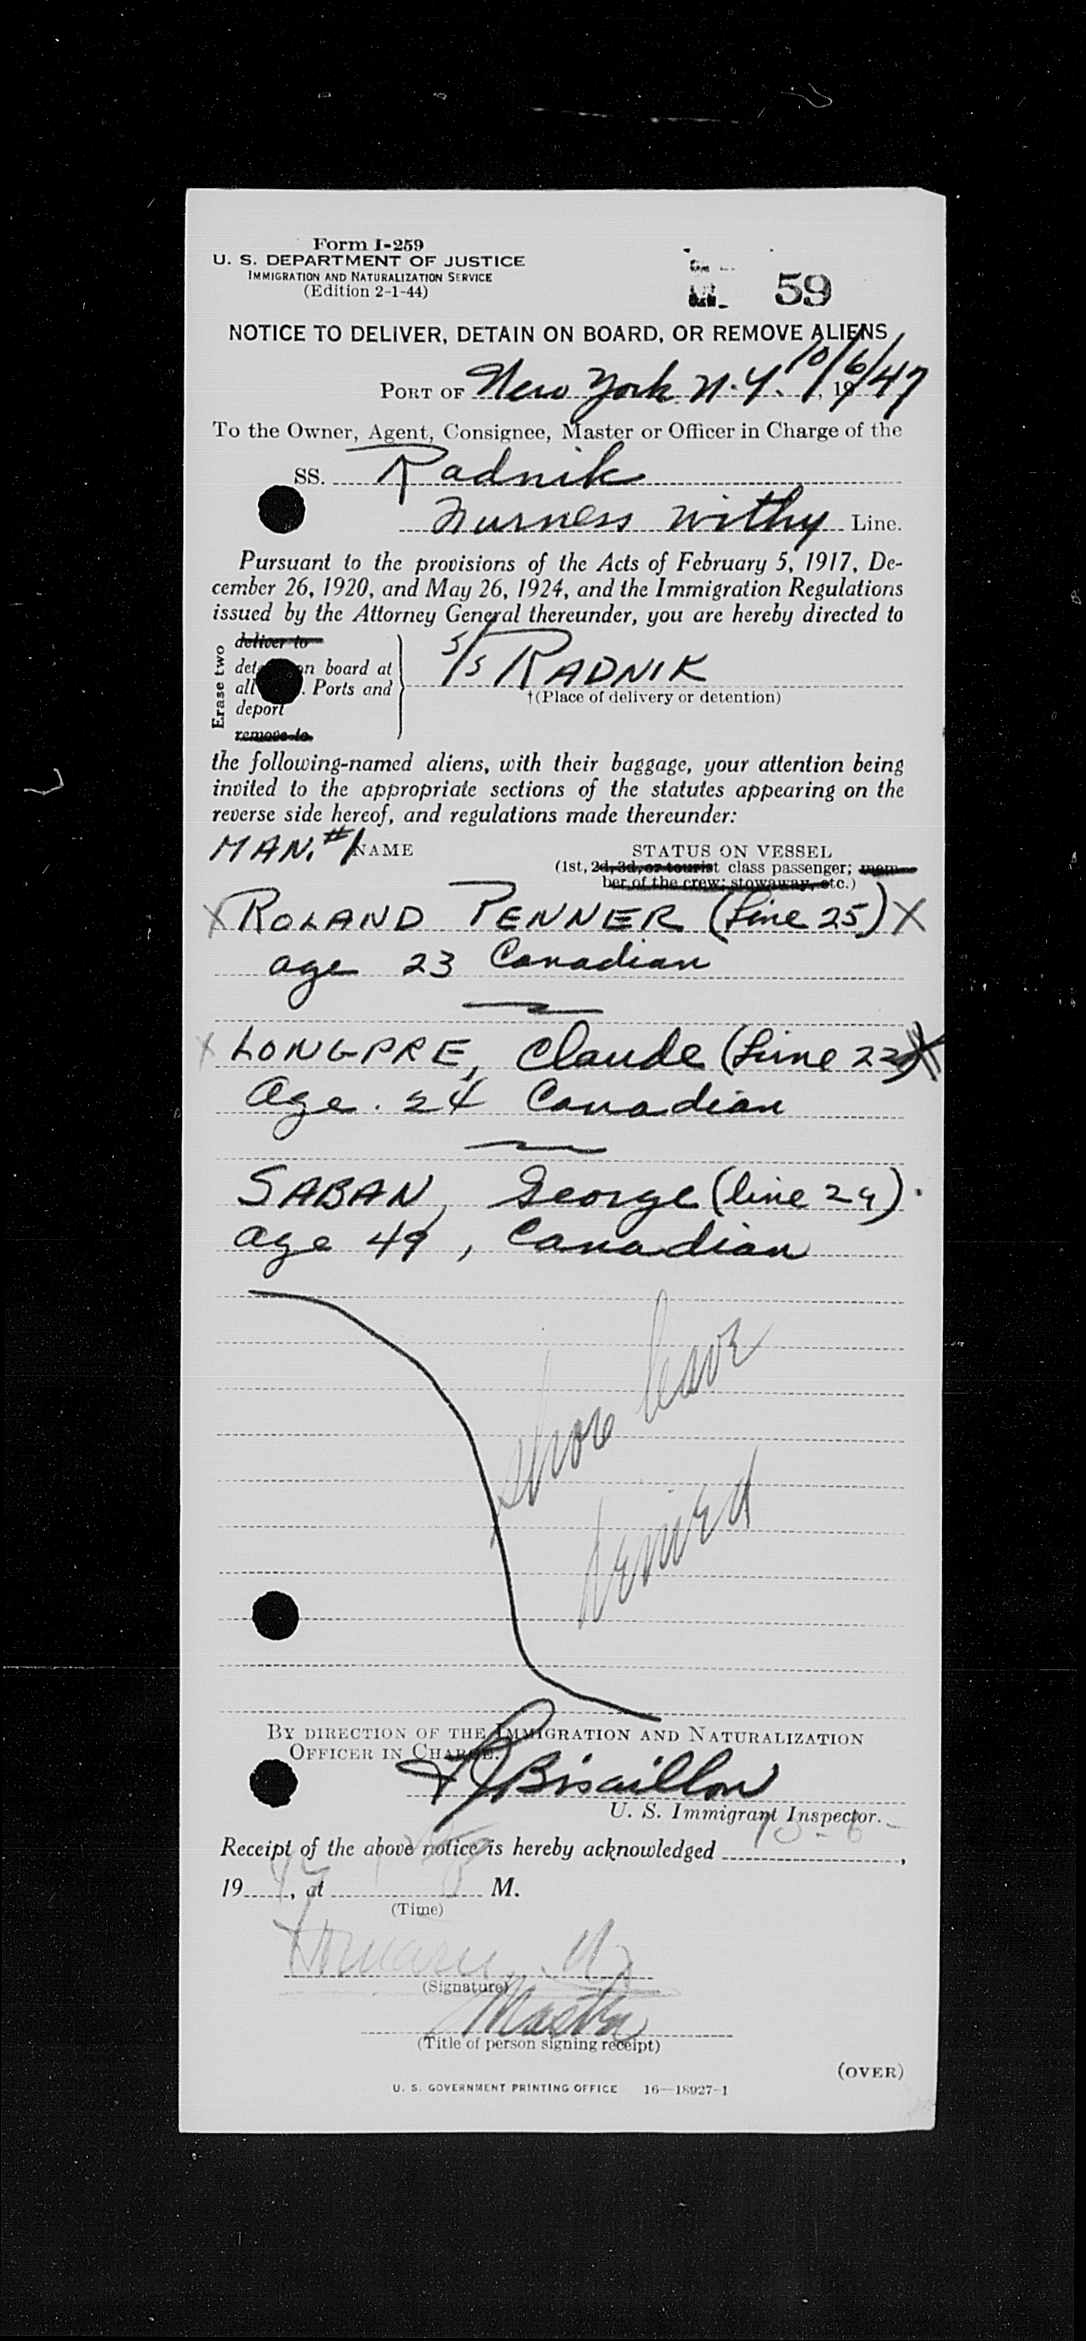 Form I-259
U. S. DEPARTMENT OF JUSTICE
IMMIGRATION AND NATURALIZATION SERVICE
(Edition 2-1-44)
59
NOTICE TO DELIVER, DETAIN ON BOARD, OR REMOVE ALIENS
PORT OF New York N.Y. 10/6/47, 19
To the Owner, Agent, Consignee, Master or Officer in Charge of the
SS. Radnik
Furness Withy Line.
Pursuant to the provisions of the Acts of February 5, 1917, De-
cember 26, 1920, and May 26, 1924, and the Immigration Regulations
issued by the Attorney General thereunder, you are hereby directed to
Erase two
deliver to
on board at
all Ports and
deport
remove to
S/S RADNIK
†(Place of delivery or detention)
the following-named aliens, with their baggage, your attention being
invited to the appropriate sections of the statutes appearing on the
reverse side hereof, and regulations made thereunder:
MAN. #1 NAME STATUS ON VESSEL
(1st, 2d, 3d, or tourist class passenger; mem-
ber of the crew; stowaway, etc.)
X ROLAND PENNER (Line 25) X
age 23 Canadian
X LONGPRE, Claude (Line 22) X
Age. 24 Canadian
SABAN, George (line 29).
age 49, Canadian
shore leave
denied
BY DIRECTION OF THE IMMIGRATION AND NATURALIZATION
OFFICER IN CHARGE.
Bisaillon
U. S. Immigrant Inspector.
Receipt of the above notice is hereby acknowledged ,
19 , at M.
(Time)
(Signature)
Master
(Title of person signing receipt)
(OVER)
U. S. GOVERNMENT PRINTING OFFICE 16—18927-1